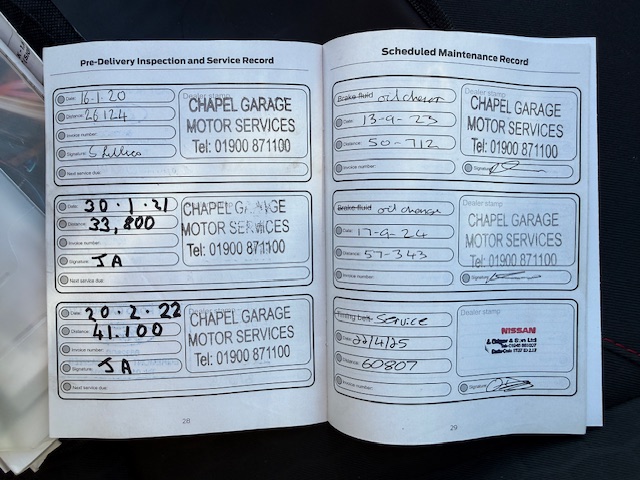 Pre-Delivery Inspection and Service Record
Date: 16.1.20
Distance: 26124
Invoice number:
Signature:
Next service due:
Dealer stamp
CHAPEL GARAGE
MOTOR SERVICES
Tel: 01900 871100
Date: 30.1.21
Distance: 33,800
Invoice number:
Signature: JA
Next service due:
CHAPEL GARAGE
MOTOR SERVICES
Tel: 01900 871100
Date: 20.2.22
Distance: 41.100
Invoice number:
Signature: JA
Next service due:
Dealer stamp
CHAPEL GARAGE
MOTOR SERVICES
Tel: 01900 871100
28
Scheduled Maintenance Record
Brake fluid oil change
Date: 13-9-23
Distance: 50-712
Invoice number:
Dealer stamp
CHAPEL GARAGE
MOTOR SERVICES
Tel: 01900 871100
Signature:
Brake fluid oil change
Date: 17-9-24
Distance: 57-343
Invoice number:
Dealer stamp
CHAPEL GARAGE
MOTOR SERVICES
Tel: 01900 871100
Signature:
Timing belt Service
Date: 22/4/25
Distance: 60807
Invoice number:
Dealer stamp
NISSAN
Signature:
29